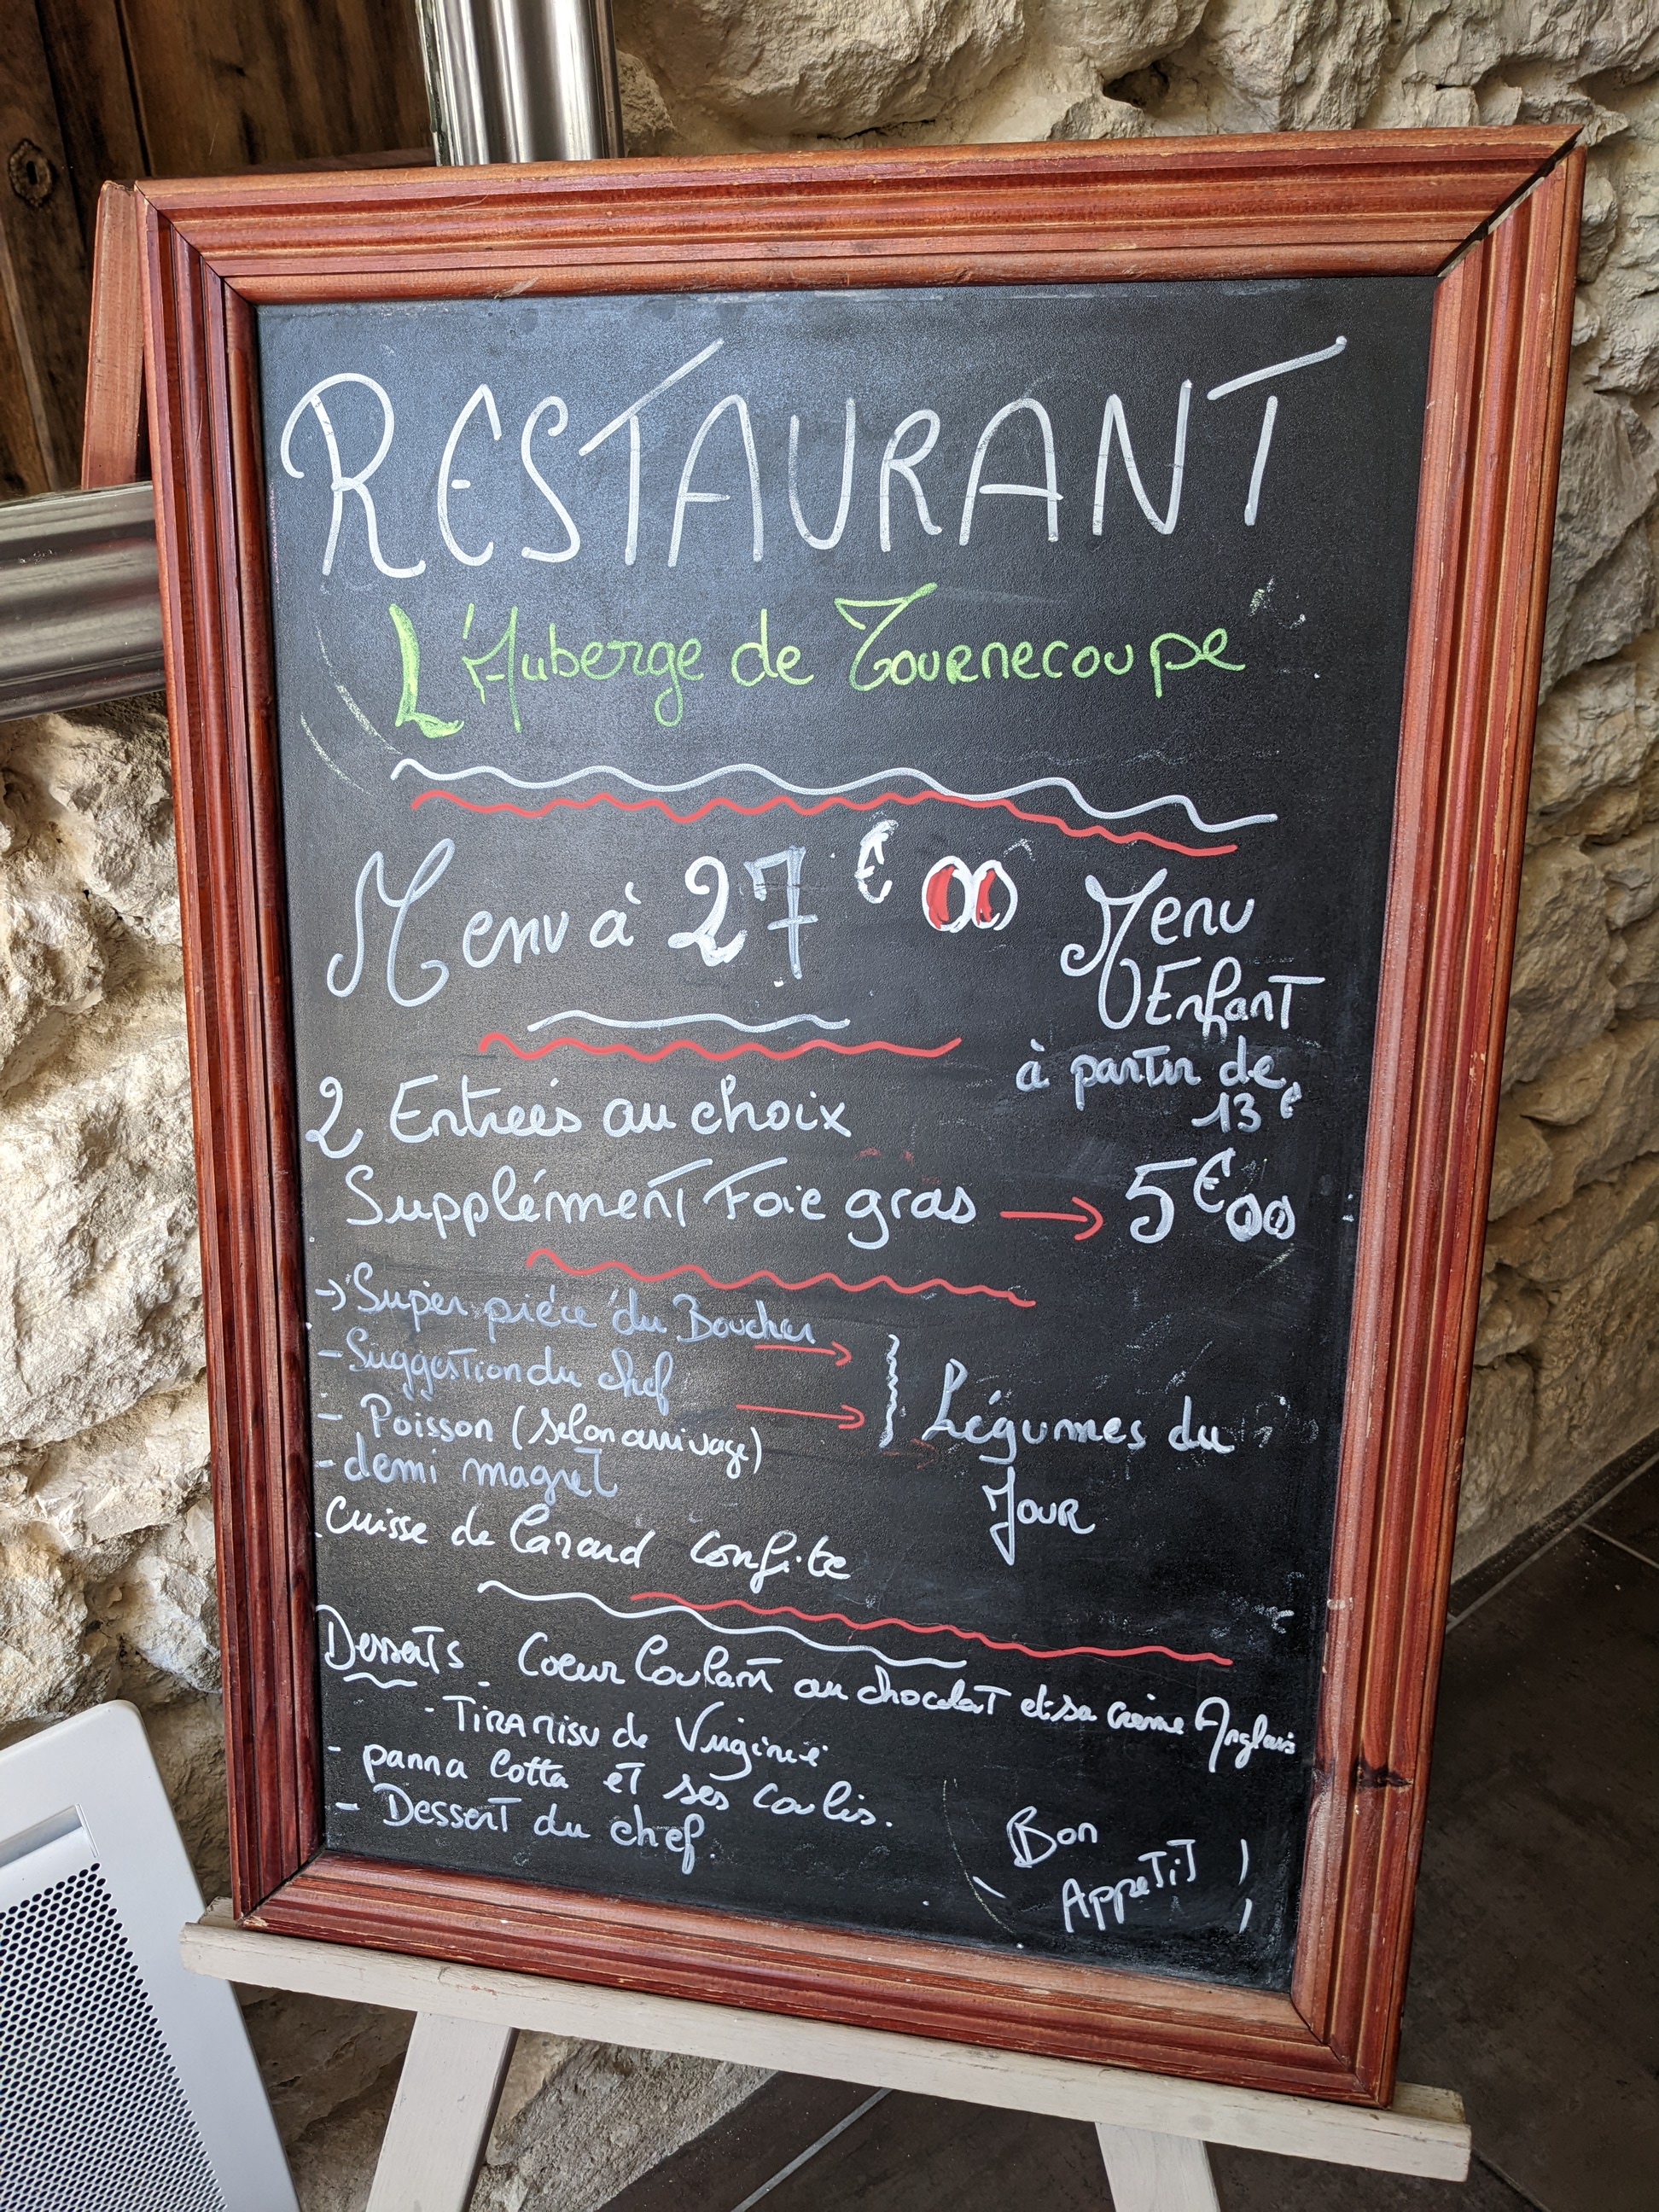 RESTAURANT
L'Auberge de Tournecoupe
Menu à 27€00
Menu
Enfant
à partir de
13€
2 Entrées au choix
Supplément Foie gras → 5€00
→ Super pièce du Boucher →
- Suggestion du chef
- Poisson (selon arrivage) →
- demi magret
Cuisse de Canard Confite
Légumes du
Jour
Desserts - Coeur Coulant au chocolat et sa crème Anglais
- TIRAMISU de Virginie
- panna Cotta et ses Coulis.
- Dessert du chef.
Bon
Appetit